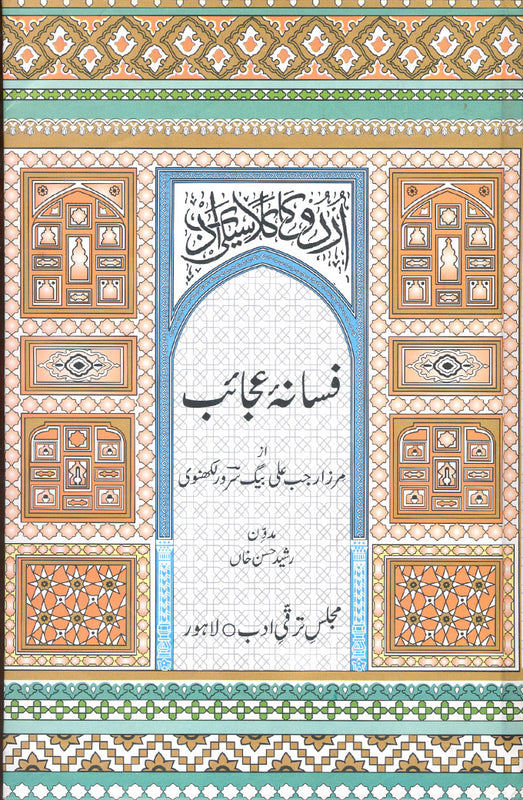 اردو کا کلاسیکی ادب
فسانۂ عجائب
از
مرزا رجب علی بیگ سرور لکھنوی
مدوّن
رشید حسن خاں
مجلسِ ترقّیِ ادب ○ لاہور